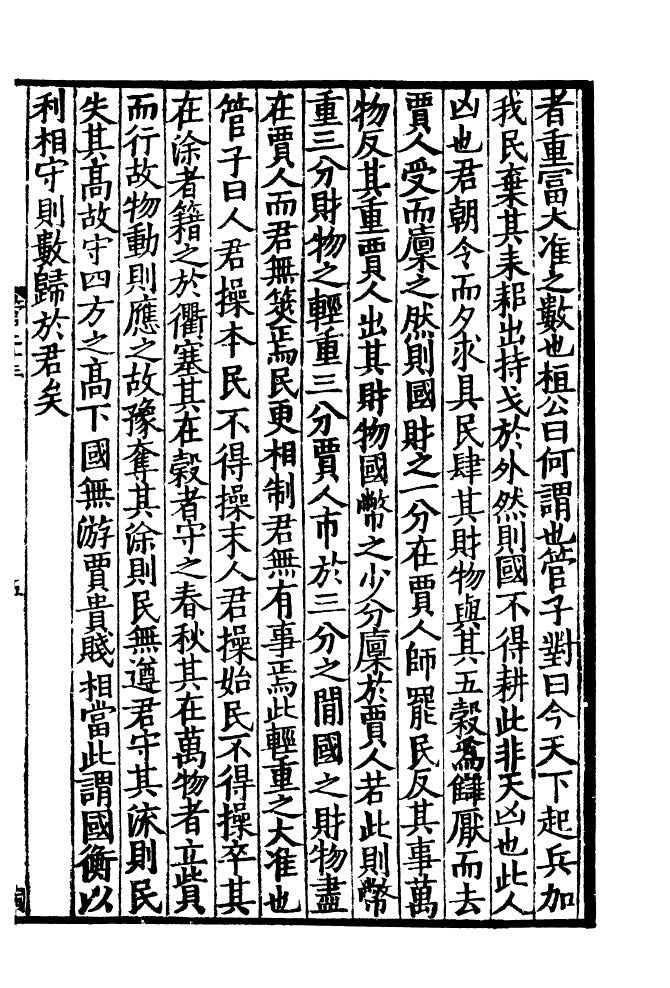 者重冨大准之數也桓公曰何謂也管子對曰今天下起兵加
我民棄其耒耜出持戈於外然則國不得耕此非天凶也此人
凶也君朝令而夕求具民肆其財物與其五穀為讎厭而去
賈人受而廩之然則國財之一分在賈人師罷民反其事萬
物反其重賈人出其財物國幣之少分廩於賈人若此則幣
重三分財物之輕重三分賈人市於三分之閒國之財物盡
在賈人而君無筴焉民更相制君無有事焉此輕重之大准也
管子曰人君操本民不得操末人君操始民不得操卒其
在涂者籍之於衢塞其在穀者守之春秋其在萬物者立貲
而行故物動則應之故豫奪其涂則民無遵君守其流則民
失其髙故守四方之髙下國無游賈貴賤相當此謂國衡以
利相守則數歸於君矣
五